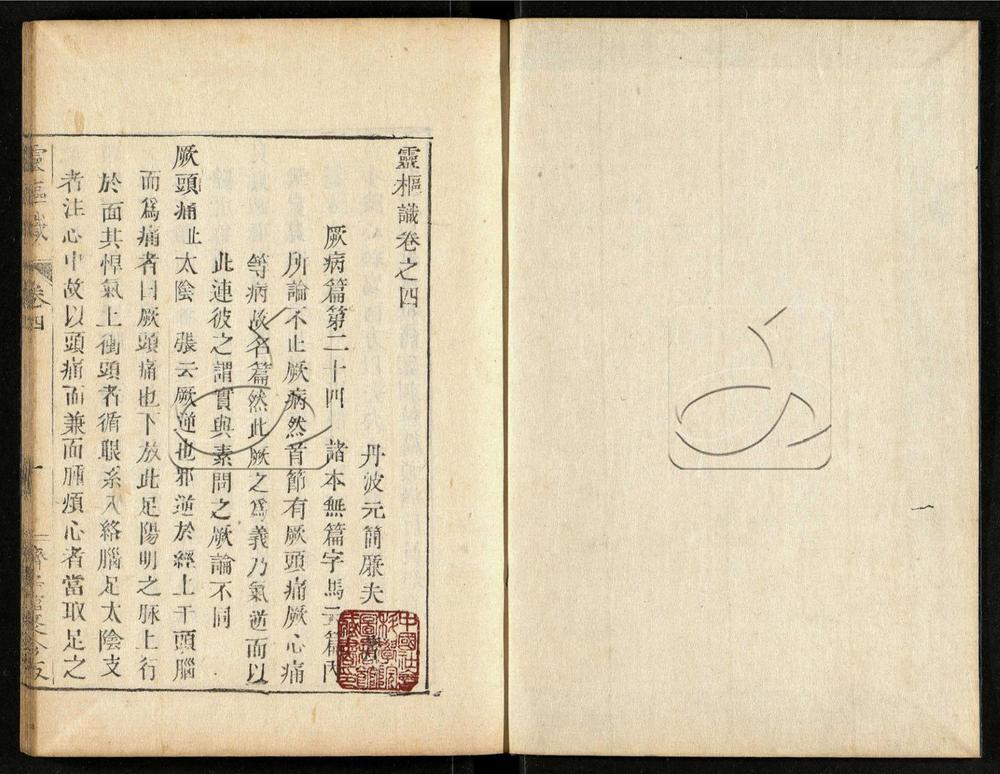 靈樞識卷之四
丹波元簡廉夫 著
厥病篇第二十四 諸本無篇字馬云篇內
所論不止厥病然首節有厥頭痛厥心痛
等病故名篇然此厥之爲義乃氣逆而以
此連彼之謂實與素問之厥論不同
厥頭痛止太陰 張云厥逆也邪逆於經上干頭腦
而爲痛者曰厥頭痛也下放此足陽明之脉上行
於面其悍氣上衝頭者循眼系入絡腦足太陰支
者注心中故以頭痛而兼面腫煩心者當取足之
靈樞識 卷四
一